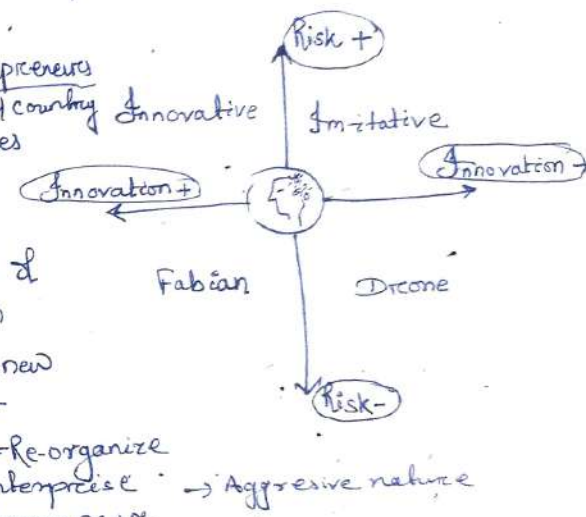 Risk +
preneurs
country Innovative Imitative
es
Innovation + Innovation -
of
Fabian Drone
new
Risk-
-Re-organize
nterprise → Aggresive nature